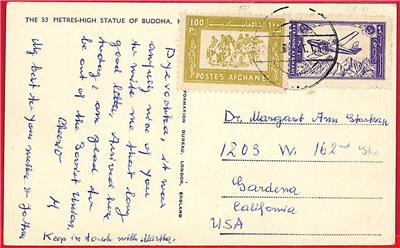 THE 53 METRES-HIGH STATUE OF BUDDHA,
it was
awfully nice of you
to write me that long
good letter. Arrived here
today; am glad to
be out of the Soviet Union.
Cheerio
M
My best to your mother & father
Keep in touch with Martha.
FORMATION BUREAU, LONDON, ENGLAND
100
POSTES AFGHANES
Dr. Margaret Ann
1203 W. 162nd St.
Gardena
California
USA